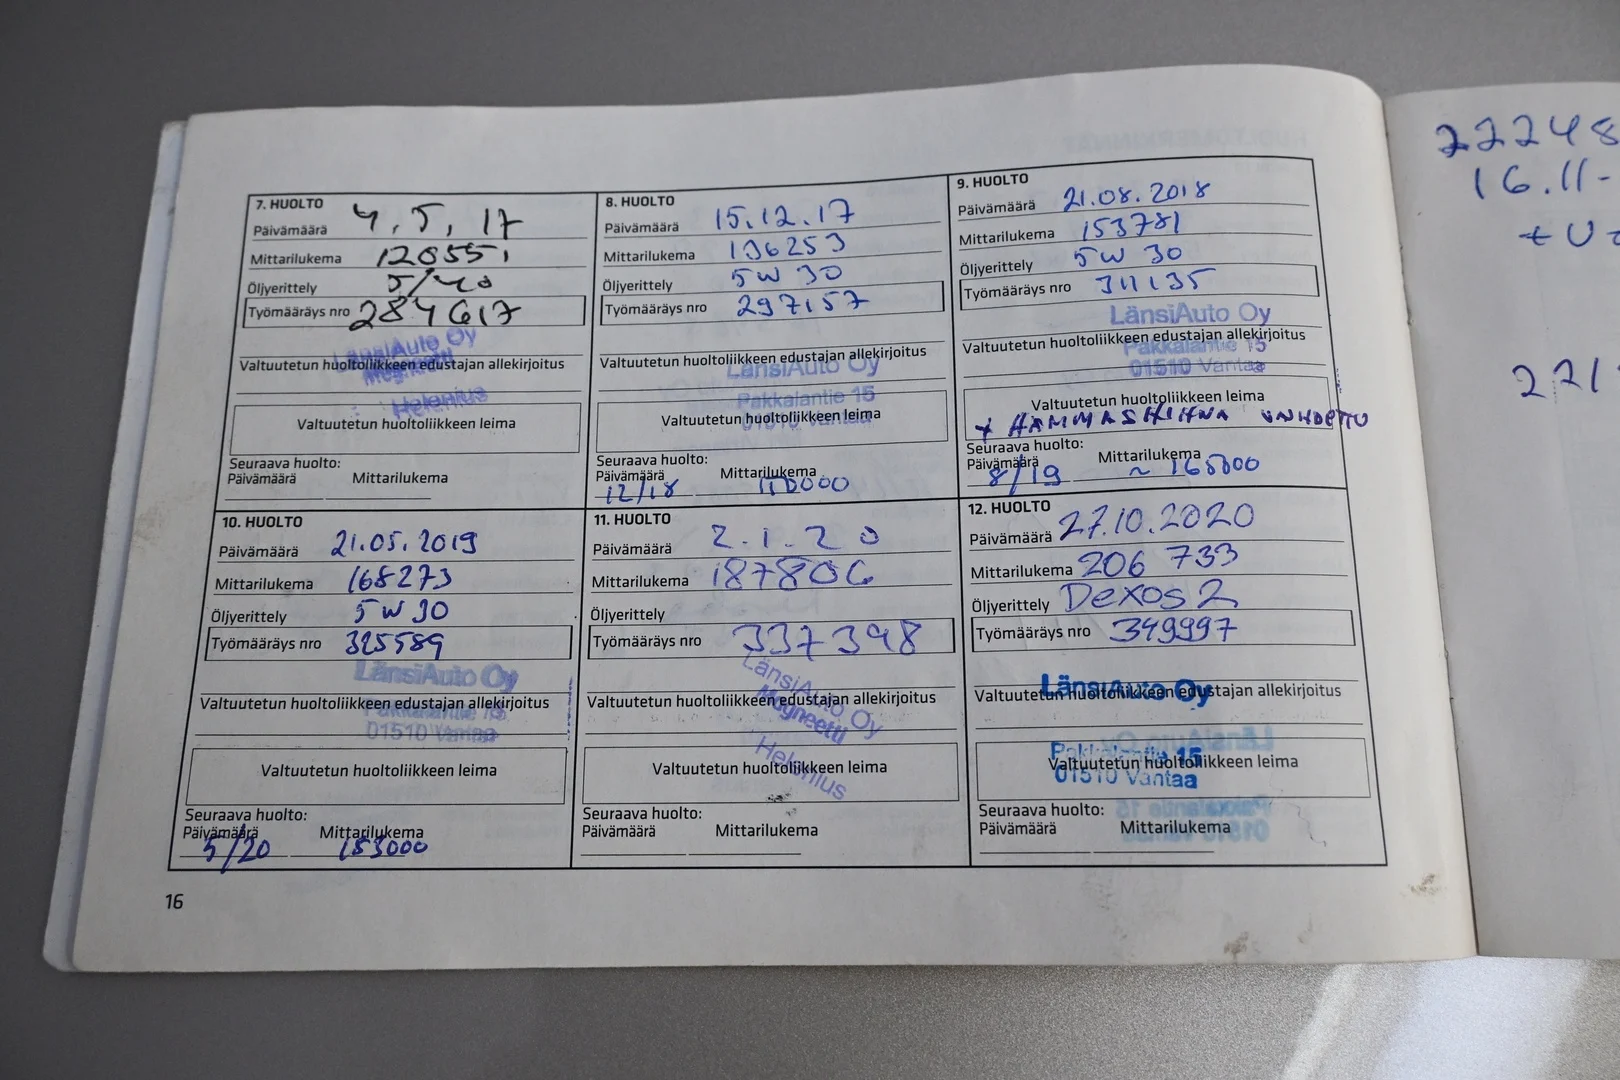 7. HUOLTO
Päivämäärä 4.5.17
Mittarilukema 120551
Öljyerittely 5/40
Työmääräys nro 284617
LänsiAuto Oy
Valtuutetun huoltoliikkeen edustajan allekirjoitus
Magneetti
Helenius
Valtuutetun huoltoliikkeen leima
Seuraava huolto:
Päivämäärä Mittarilukema
8. HUOLTO
Päivämäärä 15.12.17
Mittarilukema 136253
Öljyerittely 5W 30
Työmääräys nro 297157
Valtuutetun huoltoliikkeen edustajan allekirjoitus
LänsiAuto Oy
Pakkalantie 15
Valtuutetun huoltoliikkeen leima
01510 Vantaa
Seuraava huolto:
Päivämäärä Mittarilukema
12/18
9. HUOLTO
Päivämäärä 21.08.2018
Mittarilukema 153781
Öljyerittely 5W 30
Työmääräys nro 311135
LänsiAuto Oy
Valtuutetun huoltoliikkeen edustajan allekirjoitus
Pakkalantie 15
01510 Vantaa
Valtuutetun huoltoliikkeen leima
+ HAMMASHIHNA VAIHDETTU
Seuraava huolto:
Päivämäärä Mittarilukema
8/19 ~ 165000
10. HUOLTO
Päivämäärä 21.05.2019
Mittarilukema 168273
Öljyerittely 5W30
Työmääräys nro 325589
LänsiAuto Oy
Valtuutetun huoltoliikkeen edustajan allekirjoitus
Pakkalantie 15
01510 Vantaa
Valtuutetun huoltoliikkeen leima
Seuraava huolto:
Päivämäärä Mittarilukema
5/20 183000
11. HUOLTO
Päivämäärä 2.1.20
Mittarilukema 187806
Öljyerittely
Työmääräys nro 337398
LänsiAuto Oy
Valtuutetun huoltoliikkeen edustajan allekirjoitus
Magneetti
Helenius
Valtuutetun huoltoliikkeen leima
Seuraava huolto:
Päivämäärä Mittarilukema
12. HUOLTO
Päivämäärä 27.10.2020
Mittarilukema 206 733
Öljyerittely Dexos 2
Työmääräys nro 349997
LänsiAuto Oy
Valtuutetun huoltoliikkeen edustajan allekirjoitus
Pakkalantie 15
Valtuutetun huoltoliikkeen leima
01510 Vantaa
Seuraava huolto:
Päivämäärä Mittarilukema
16
22248
16.11-
221